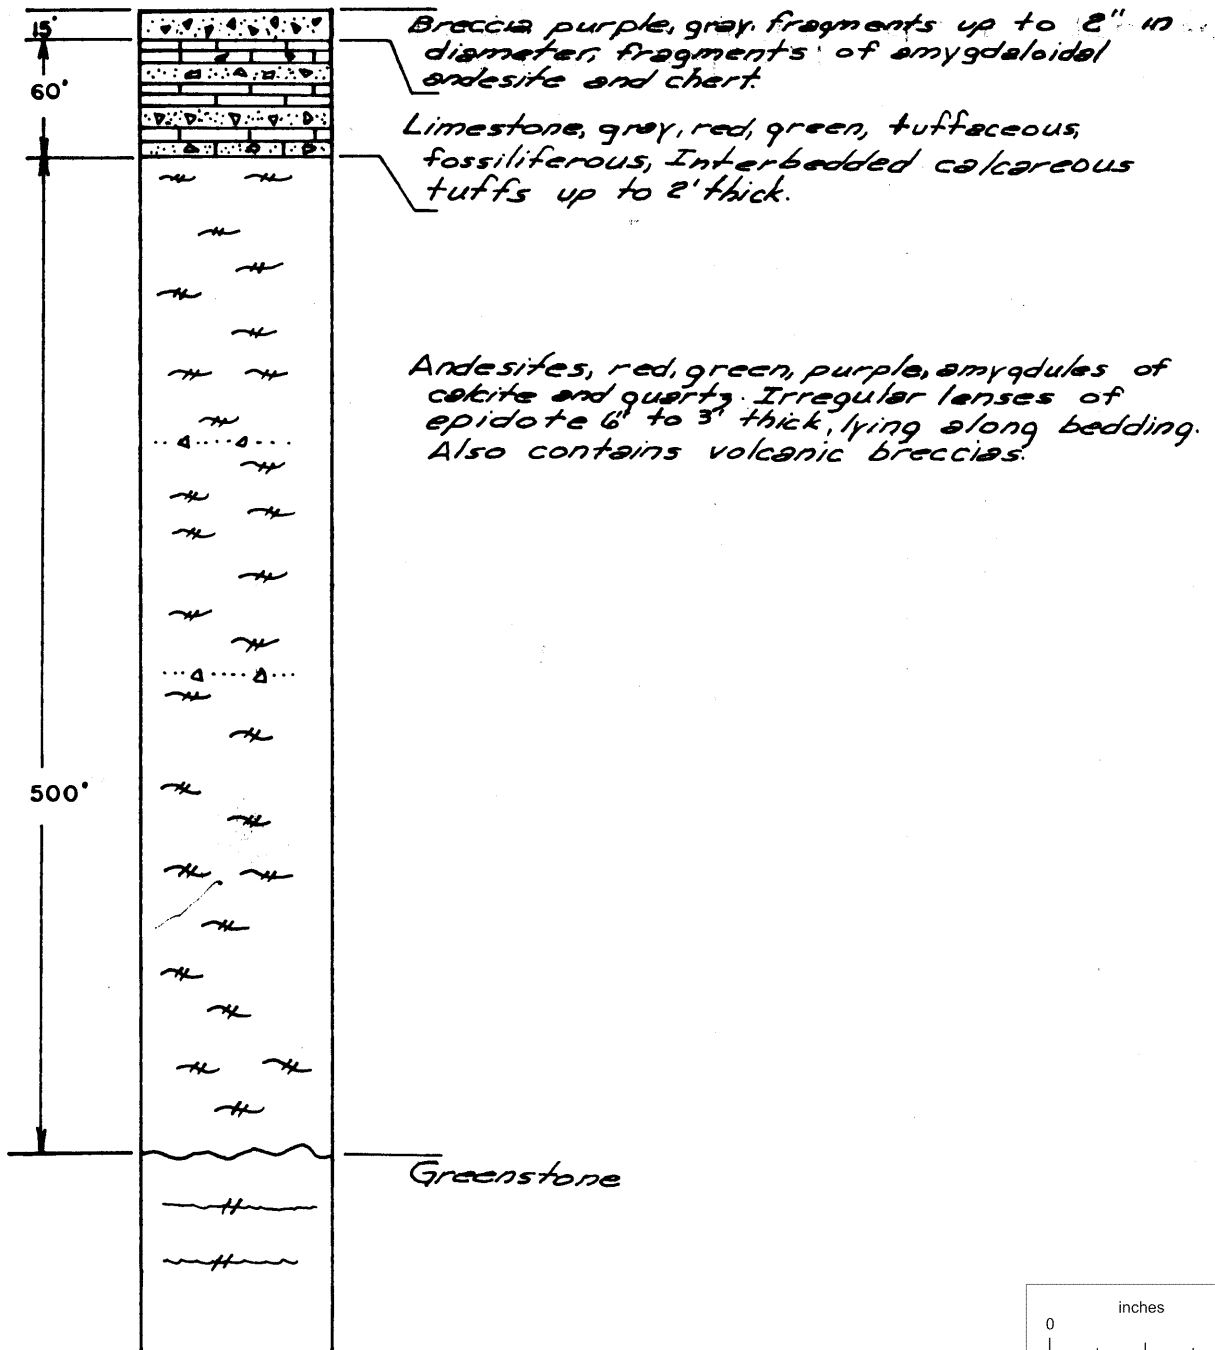 15'
Breccia purple, gray, fragments up to 2" in
diameter, fragments of amygdaloidal
andesite and chert.
60'
Limestone, gray, red, green, tuffaceous,
fossiliferous, Interbedded calcareous
tuffs up to 2' thick.
Andesites, red, green, purple, amygdules of
calcite and quartz. Irregular lenses of
epidote 6" to 3' thick, lying along bedding.
Also contains volcanic breccias.
500'
Greenstone
inches
0